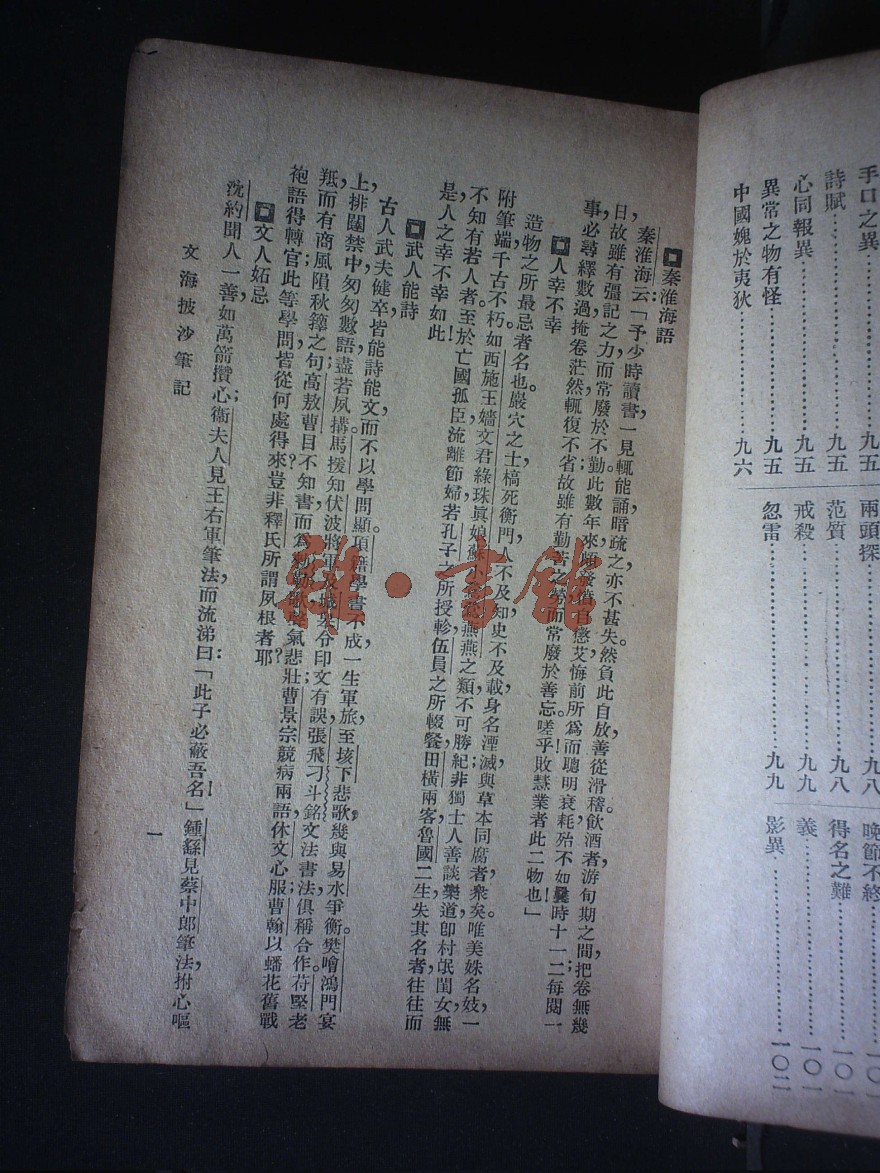 手口之異………九五
詩賦………九五
心同報異………九五
異常之物有怪………九五
中國媿於夷狄………九六
兩頭探………九八
范質………九八
戒殺………九九
忽雷………九九
晚節不終………一〇一
得名之難………一〇一
義………一〇一
影異………一〇二
秦淮海語
秦淮海云：「予少時讀書，一見輒能誦，暗疏之亦不甚失，然負此自放，善從滑稽飲酒者游，旬期之間，把卷無幾
日，故雖有彊記之力，而常廢於不勤。此數年來，頗發憤自懲艾，悔前所爲，而聰明衰耗，殆不如曩時十一二；每閱一
事，必尋繹數過，掩卷茫然，輒復不省，故雖有勤苦之勞，而常廢於善忘。嗟乎！敗慧業者，此二物也！」
人幸不幸
造物之所最忌者名也。嚴穴之士，槁死衡門，人不及知，史不及載，身名湮滅，與草本同腐者衆矣。唯美姝名妓，一
附筆端，千古不朽，如西施王嬙文君綠珠眞娘蘇小鶯鶯燕燕之類，不可勝紀；非獨士人善談樂道，卽村氓閨女，無
不知有若人者。至於亡國孤臣，流離節婦，若孔子之所授軫，伍員之所輟餐，田橫兩客，魯國二生，失其名者，往往而
是，人之幸不幸如此！
武人能詩
古人武夫健卒，皆能詩能文，而不以學問顯。項籍學書不成，一生軍旅，至垓下悲歌，幾與易水爭衡。樊噲鴻門宴
上，排闥禁中，匆匆數語，盡若夙搆。馬援知伏波將軍及城臯令印文有誤；張飛刁斗銘，文法書法，俱稱合作。苻堅老
羝，而有商風隕秋籜之句；高敖曹目不知書，而爲勅勒歌，聲氣悲壯；曹景宗競病兩語，休文心服；曹翰以蟠花舊戰
袍語得轉官；此等學問，皆從何處得來？豈非釋氏所謂夙根者耶？
文人妬忌
沈約聞人一善，如萬箭攢心；衞夫人見王右軍筆法，而流涕曰：「此子必蔽吾名！」鍾繇見蔡中郎筆法，拊心嘔
文海披沙筆記
一
雜·書館